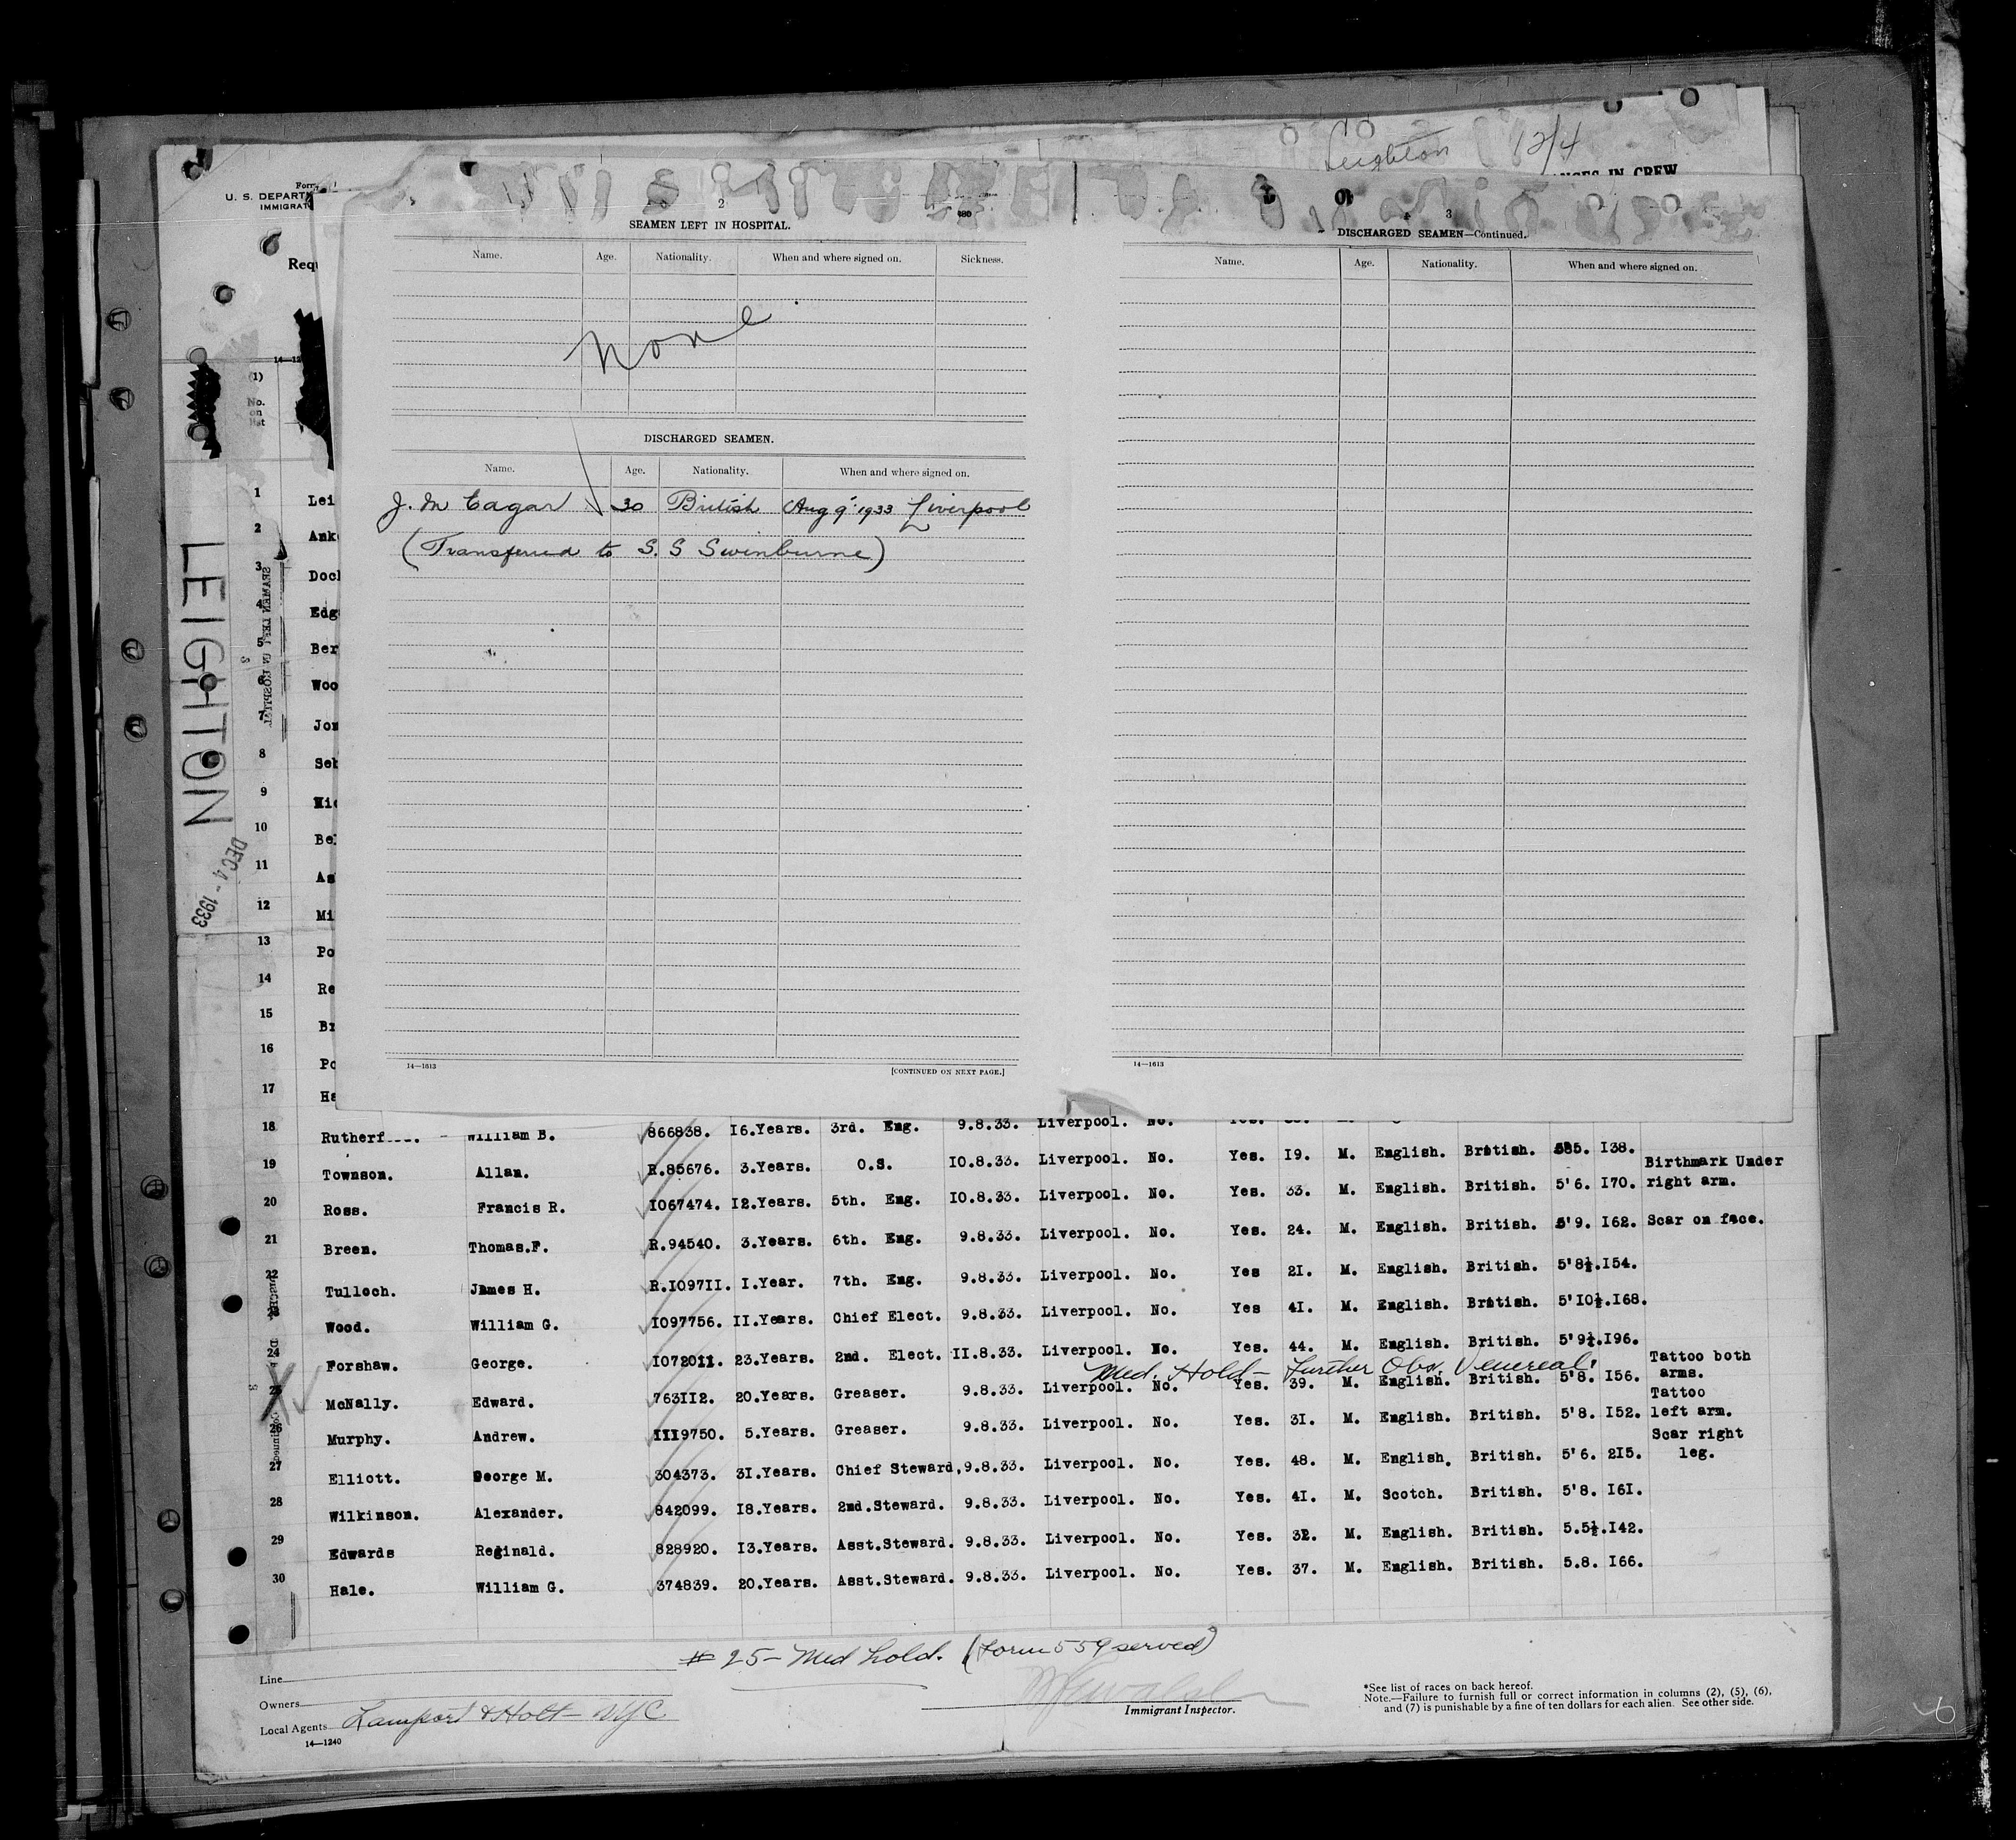 Leighton 12/4
IN CREW
U. S. DEPART
IMMIGRAT
2
SEAMEN LEFT IN HOSPITAL.
Name. Age. Nationality. When and where signed on. Sickness.
None
DISCHARGED SEAMEN.
Name. Age. Nationality. When and where signed on.
J. M Eagar 30 British Aug 9 1933 Liverpool
(Transferred to S. S Swinburne)
14—1613
[CONTINUED ON NEXT PAGE.]
3
DISCHARGED SEAMEN—Continued.
Name. Age. Nationality. When and where signed on.
14—1613
(1)
No.
on
list
LEIGHTON
DEC 4 - 1933
1 Lei
2 Ank
3 Doc
4 Edg
5 Ber
6 Woo
7 Jon
8
9
10 Be
11 As
12 Mi
13 Po
14 Re
15 Br
16 Po
17 Ha
18 Rutherf William B. 866838. I6.Years. 3rd. Eng. 9.8.33. Liverpool. No.
19 Townson. Allan. R.85676. 3.Years. O.S. IO.8.33. Liverpool. No. Yes. I9. M. English. British. I38.
20 Ross. Francis R. I067474. I2.Years. 5th. Eng. IO.8.33. Liverpool. No. Yes. 33. M. English. British. 5'6. I70. Birthmark Under right arm.
21 Breen. Thomas.F. R.94540. 3.Years. 6th. Eng. 9.8.33. Liverpool. No. Yes. 24. M. English. British. 5'9. I62. Scar on face.
22 Tulloch. James H. R.I097II. I.Year. 7th. Eng. 9.8.33. Liverpool. No. Yes 2I. M. English. British. 5'8½.I54.
23 Wood. William G. I097756. II.Years. Chief Elect. 9.8.33. Liverpool. No. Yes 4I. M. English. British. 5'IO½.I68.
24 Forshaw. George. I0720II. 23.Years. 2nd. Elect. II.8.33. Liverpool. No. Yes. 44. M. English. British. 5'9½.I96.
Med. Hold - Further Obs. Venereal.
25 McNally. Edward. 763II2. 20.Years. Greaser. 9.8.33. Liverpool. No. Yes. 39. M. English. British. 5'8. I56. Tattoo both arms.
26 Murphy. Andrew. III9750. 5.Years. Greaser. 9.8.33. Liverpool. No. Yes. 3I. M. English. British. 5'8. I52. Tattoo left arm.
27 Elliott. George M. 304373. 3I.Years. Chief Steward. 9.8.33. Liverpool. No. Yes. 48. M. English. British. 5'6. 2I5. Scar right leg.
28 Wilkinson. Alexander. 842099. I8.Years. 2nd.Steward. 9.8.33. Liverpool. No. Yes. 4I. M. Scotch. British. 5'8. I6I.
29 Edwards Reginald. 828920. I3.Years. Asst.Steward. 9.8.33. Liverpool. No. Yes. 32. M. English. British. 5.5½.I42.
30 Hale. William G. 374839. 20.Years. Asst.Steward. 9.8.33. Liverpool. No. Yes. 37. M. English. British. 5.8. I66.
# 25 - Med hold. (Form 559 served)
Line
Owners
Local Agents Lamport & Holt - NYC
14—1240
Immigrant Inspector.
*See list of races on back hereof.
Note.—Failure to furnish full or correct information in columns (2), (5), (6),
and (7) is punishable by a fine of ten dollars for each alien. See other side.